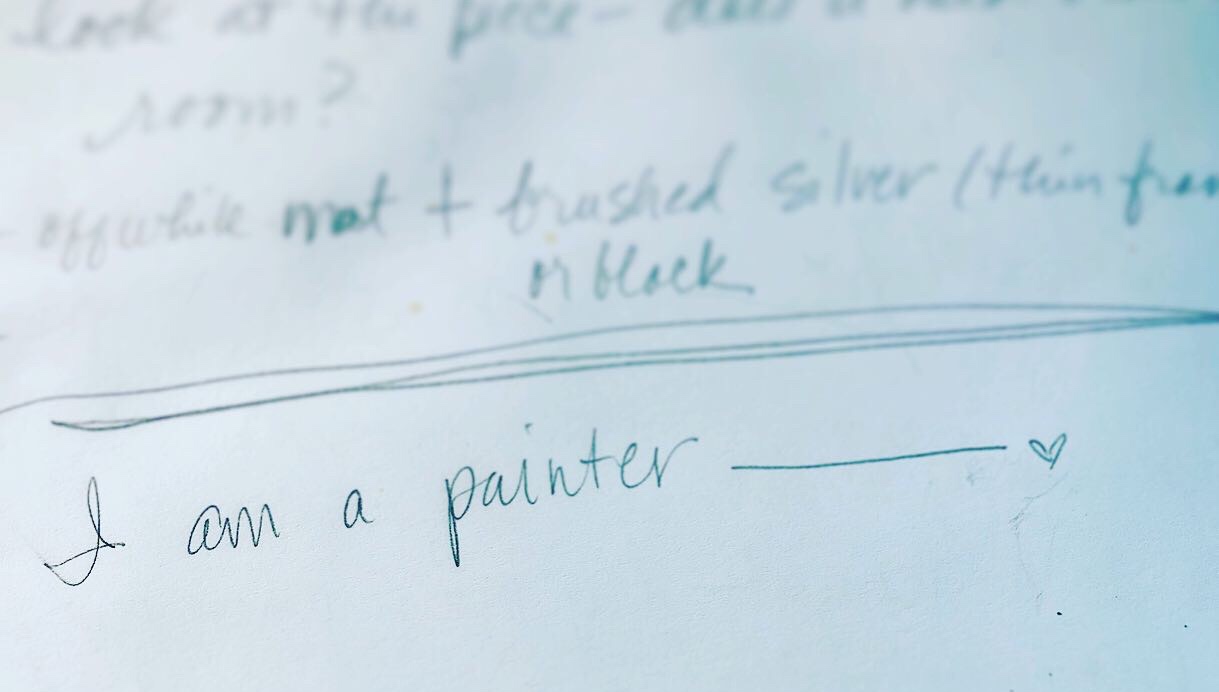 look at the piece - does it
room?
- offwhite mat + brushed silver (thin
or black
I am a painter — ♡